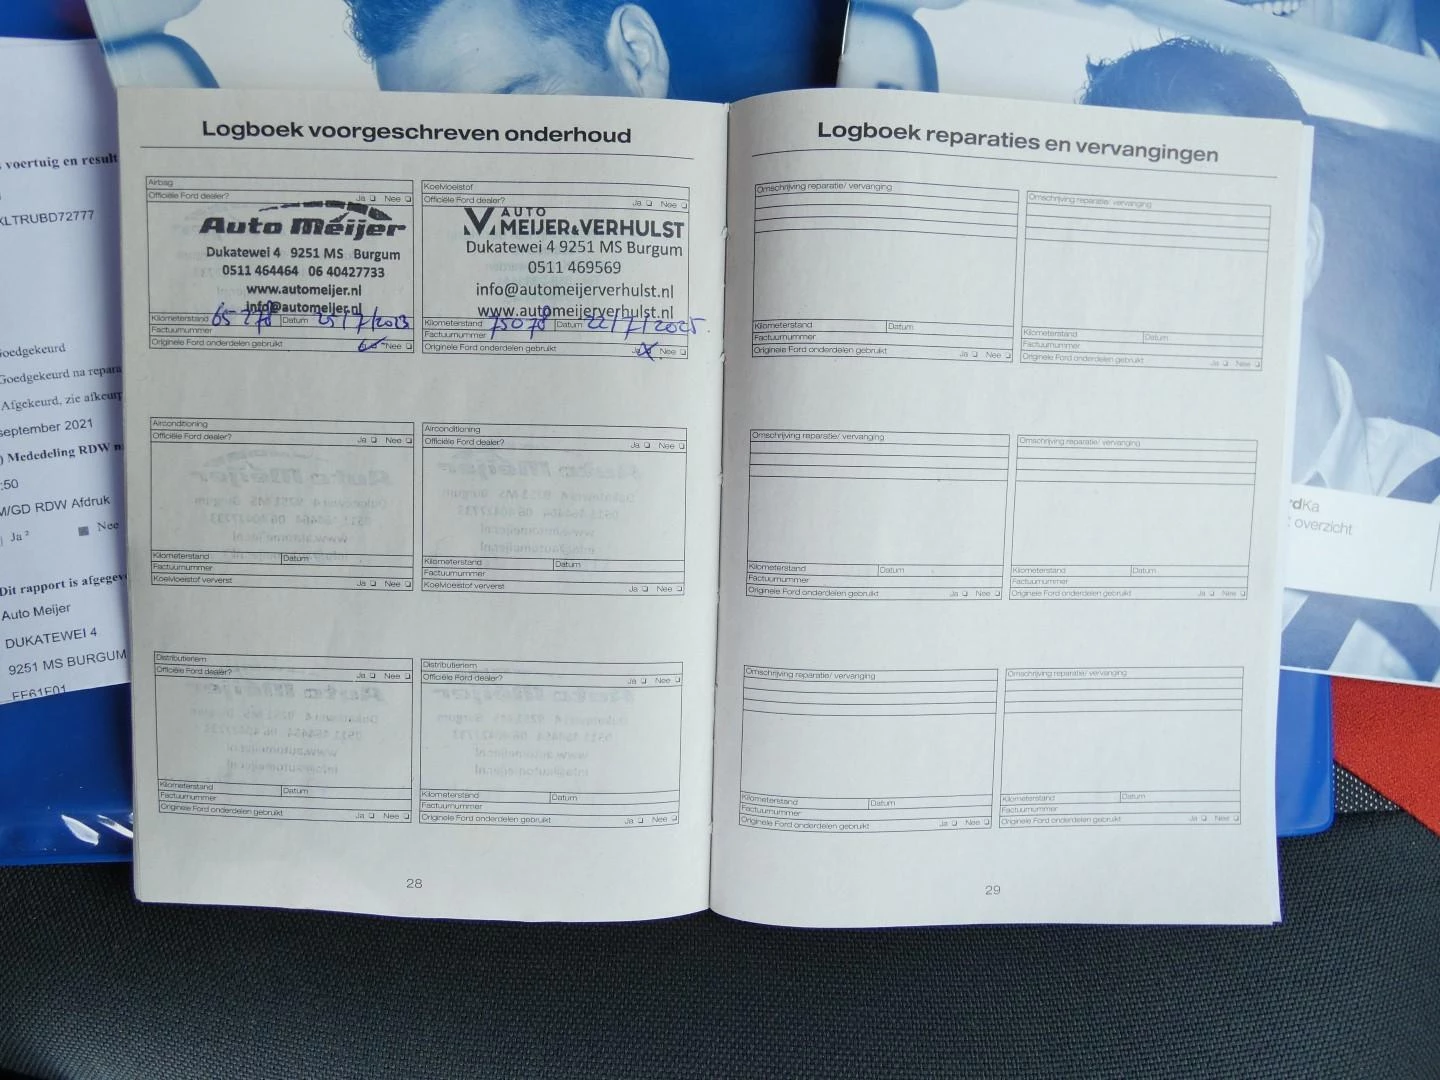 voertuig en result
KLTRUBD72777
Goedgekeurd
Goedgekeurd na repara
Afgekeurd, zie afkeurp
september 2021
) Mededeling RDW
:50
M/GD RDW Afdruk
Ja ² Nee
Dit rapport is afgegeve
Auto Meijer
DUKATEWEI 4
9251 MS BURGUM
FF61F01
Logboek voorgeschreven onderhoud
Airbag
Officiële Ford dealer? Ja Nee
Auto Meijer
Dukatewei 4 9251 MS Burgum
0511 464464 06 40427733
www.autometijer.nl
info@autometijer.nl
Kilometerstand 65 278 Datum 25/7/2023
Factuurnummer
Originele Ford onderdelen gebruikt Nee
Koelvloeistof
Officiële Ford dealer? Ja Nee
AUTO
MEIJER&VERHULST
Dukatewei 4 9251 MS Burgum
0511 469569
info@automeijerverhulst.nl
www.automeijerverhulst.nl
Kilometerstand 75078 Datum 22/7/2025.
Factuurnummer
Originele Ford onderdelen gebruikt Ja Nee
Airconditioning
Officiële Ford dealer? Ja Nee
Kilometerstand Datum
Factuurnummer
Koelvloeistof ververst Ja Nee
Originele Ford onderdelen gebruikt Ja Nee
Airconditioning
Officiële Ford dealer? Ja Nee
Kilometerstand Datum
Factuurnummer
Koelvloeistof ververst Ja Nee
Originele Ford onderdelen gebruikt Ja Nee
Distributieriem
Officiële Ford dealer? Ja Nee
Kilometerstand Datum
Factuurnummer
Originele Ford onderdelen gebruikt Ja Nee
Distributieriem
Officiële Ford dealer? Ja Nee
Kilometerstand Datum
Factuurnummer
Originele Ford onderdelen gebruikt Ja Nee
28
Logboek reparaties en vervangingen
Omschrijving reparatie/ vervanging
Kilometerstand Datum
Factuurnummer
Originele Ford onderdelen gebruikt Ja Nee
Omschrijving reparatie/ vervanging
Kilometerstand Datum
Factuurnummer
Originele Ford onderdelen gebruikt Ja Nee
Omschrijving reparatie/ vervanging
Kilometerstand Datum
Factuurnummer
Originele Ford onderdelen gebruikt Ja Nee
Omschrijving reparatie/ vervanging
Kilometerstand Datum
Factuurnummer
Originele Ford onderdelen gebruikt Ja Nee
Omschrijving reparatie/ vervanging
Kilometerstand Datum
Factuurnummer
Originele Ford onderdelen gebruikt Ja Nee
Omschrijving reparatie/ vervanging
Kilometerstand Datum
Factuurnummer
Originele Ford onderdelen gebruikt Ja Nee
29
rdKa
overzicht